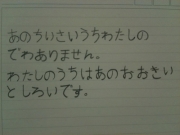 あのちいさいうちわたしの
でわありません。
わたしのうちはあのおおきい
としろいです。